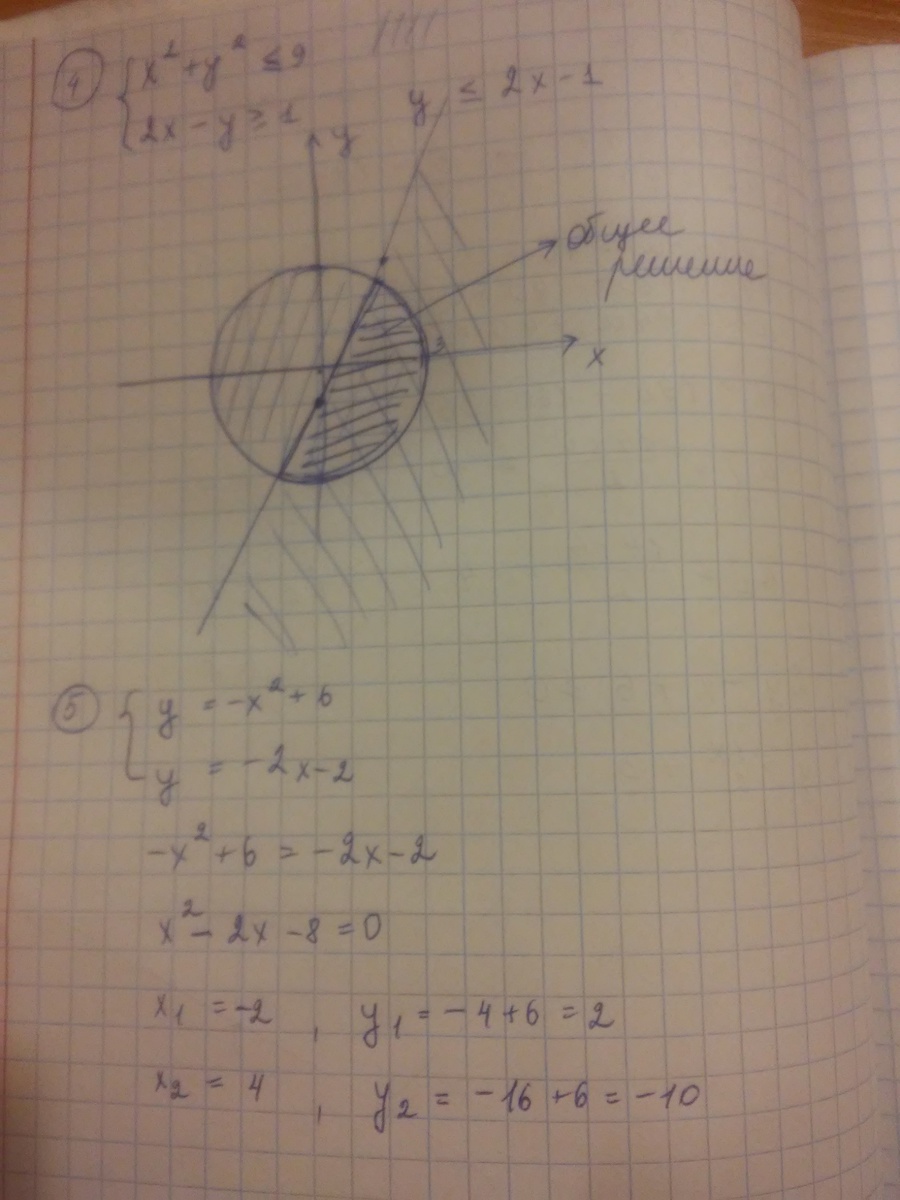 4 { x² + y² ≤ 9
2x - y ≥ 1
y ≤ 2x - 1
y
общее
решение
3
x
5 { y = -x² + 6
y = -2x - 2
-x² + 6 = -2x - 2
x² - 2x - 8 = 0
x₁ = -2 , y₁ = -4 + 6 = 2
x₂ = 4 , y₂ = -16 + 6 = -10